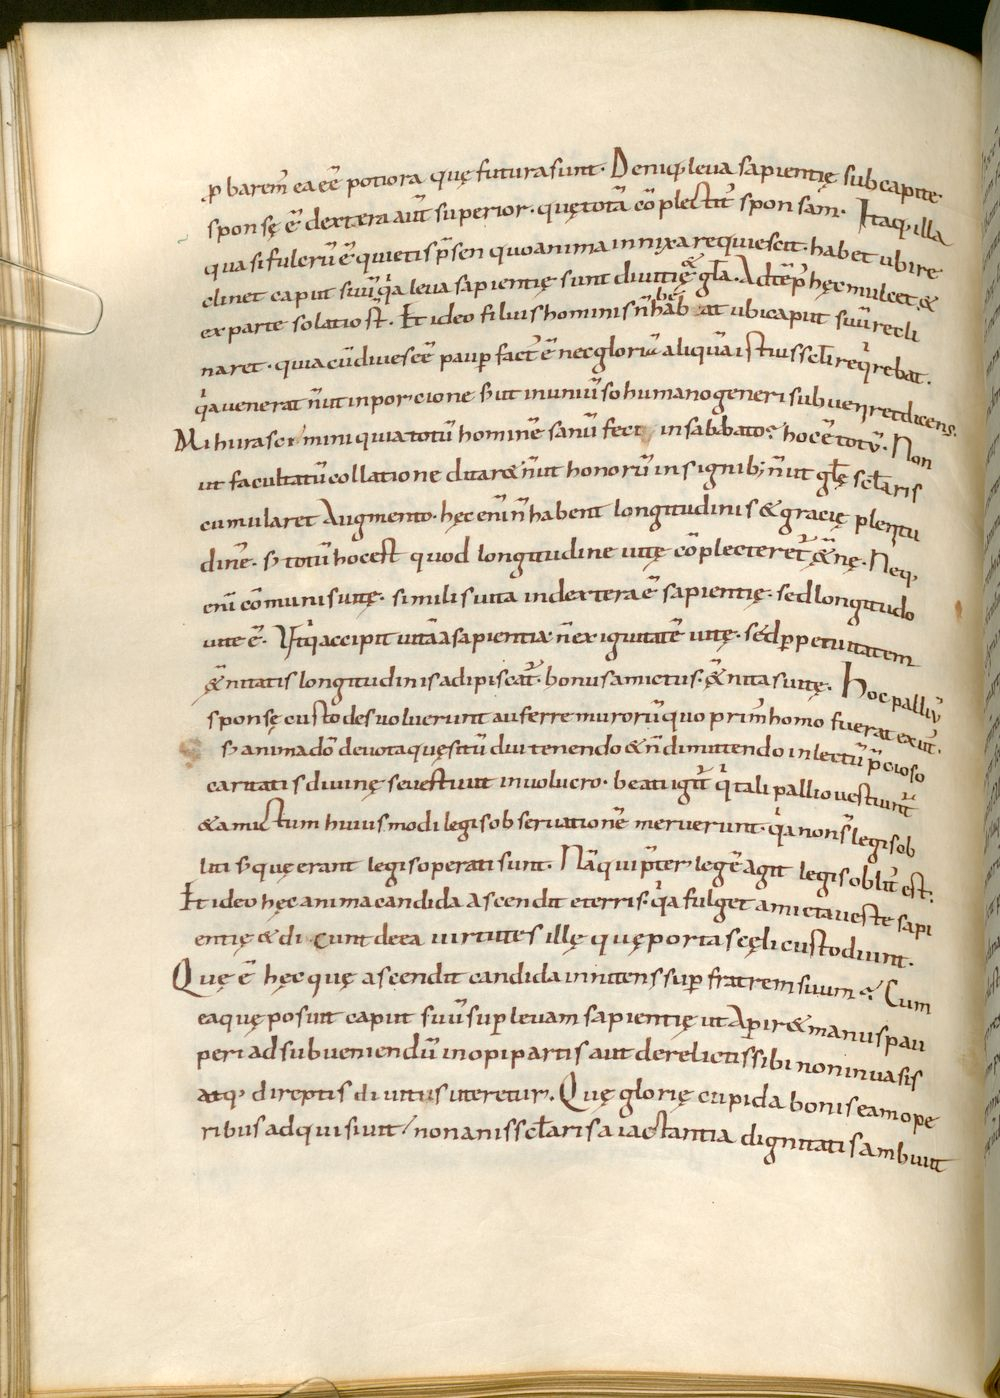 ꝓbarem̄ ea eē potiora quę futura sunt. Deniq; leva sapientię sub capite
sponsę ē dextera aūt superior. quę totā cōplectit̄ sponsam. Itaq; illa
quasi fulcrū ē quietis p̄sen quo anima innixa requiescit. habet ubi re
clinet caput suū q̄a leva sapientię sunt divitię & gl̄a. Ad tēp̄ hęc mulcet &
ex parte solatio s̄t. Et ideo filius hominis n̄ habebat ubi caput suū recli
naret. quia cū dives eēt paup̄ fact̄ ē nec gloriā aliquā istius sc̄li req̄rebat.
q̄a venerat n̄ ut in porcione s̄ ut in univ̄so humano generi subveniret dicens.
Mihi irascimini quia totū hominē sanū feci in sabbato? hoc ē totū. Non
ut facultatū collatione ditar& n̄ ut honorū insignib; n̄ ut gl̄ę sc̄laris
cumularet Augmento. hęc enī n̄ habent longitudinis & gracię plenitu
dinē. s̄ totū hoc est quod longitudine vitę cōplecteret̄ &̄nę. Neq;
enī cōmunis vitę. similis vita in dextera ē sapientię. sed longitudo
vite ē. Vt q̄ accipit vitā a sapientia n̄ exiguitatē vitę. sed ꝑpetuitatem
&̄nitatis longitudinis adipiscat̄. bonus amictus. &̄nitas vitę. Hoc palliū
sponsę custodes voluerunt auferre murorū quo prim̄ homo fuerat exut̄.
s̄ anima dō devota quęsitū diu tenendo & n̄ dimittendo in lectū p̄cioso
caritatis divinę se vestivit involucro. beati igit̄ q̄ tali pallio vestiunt̄
& amictum huiusmodi legis observationē meruerunt. q̄a non s̄ legis ob
liti s̄ quę erant legis operati sunt. Nā qui p̄ter legē agit legis oblit̄ est.
Et ideo hęc anima candida ascendit e terris. q̄a fulget amicta veste sapi
entię & dicunt de ea virtutes illę quę porta scęli custodiunt.
Quę ē hęc quę ascendit candida innitens sup̄ fratrem suum? Cum
ea quę posuit caput suū sup̄ levam sapientię ut Aperir& manus pau
peri ad subveniendū inopi partis aut derelictis sibi non invasis
atq; direptis divitiis uteretur. Quę glorię cupida bonis eam ope
ribus adquisivit / non anis sc̄laris a iactantia dignitatis ambivit